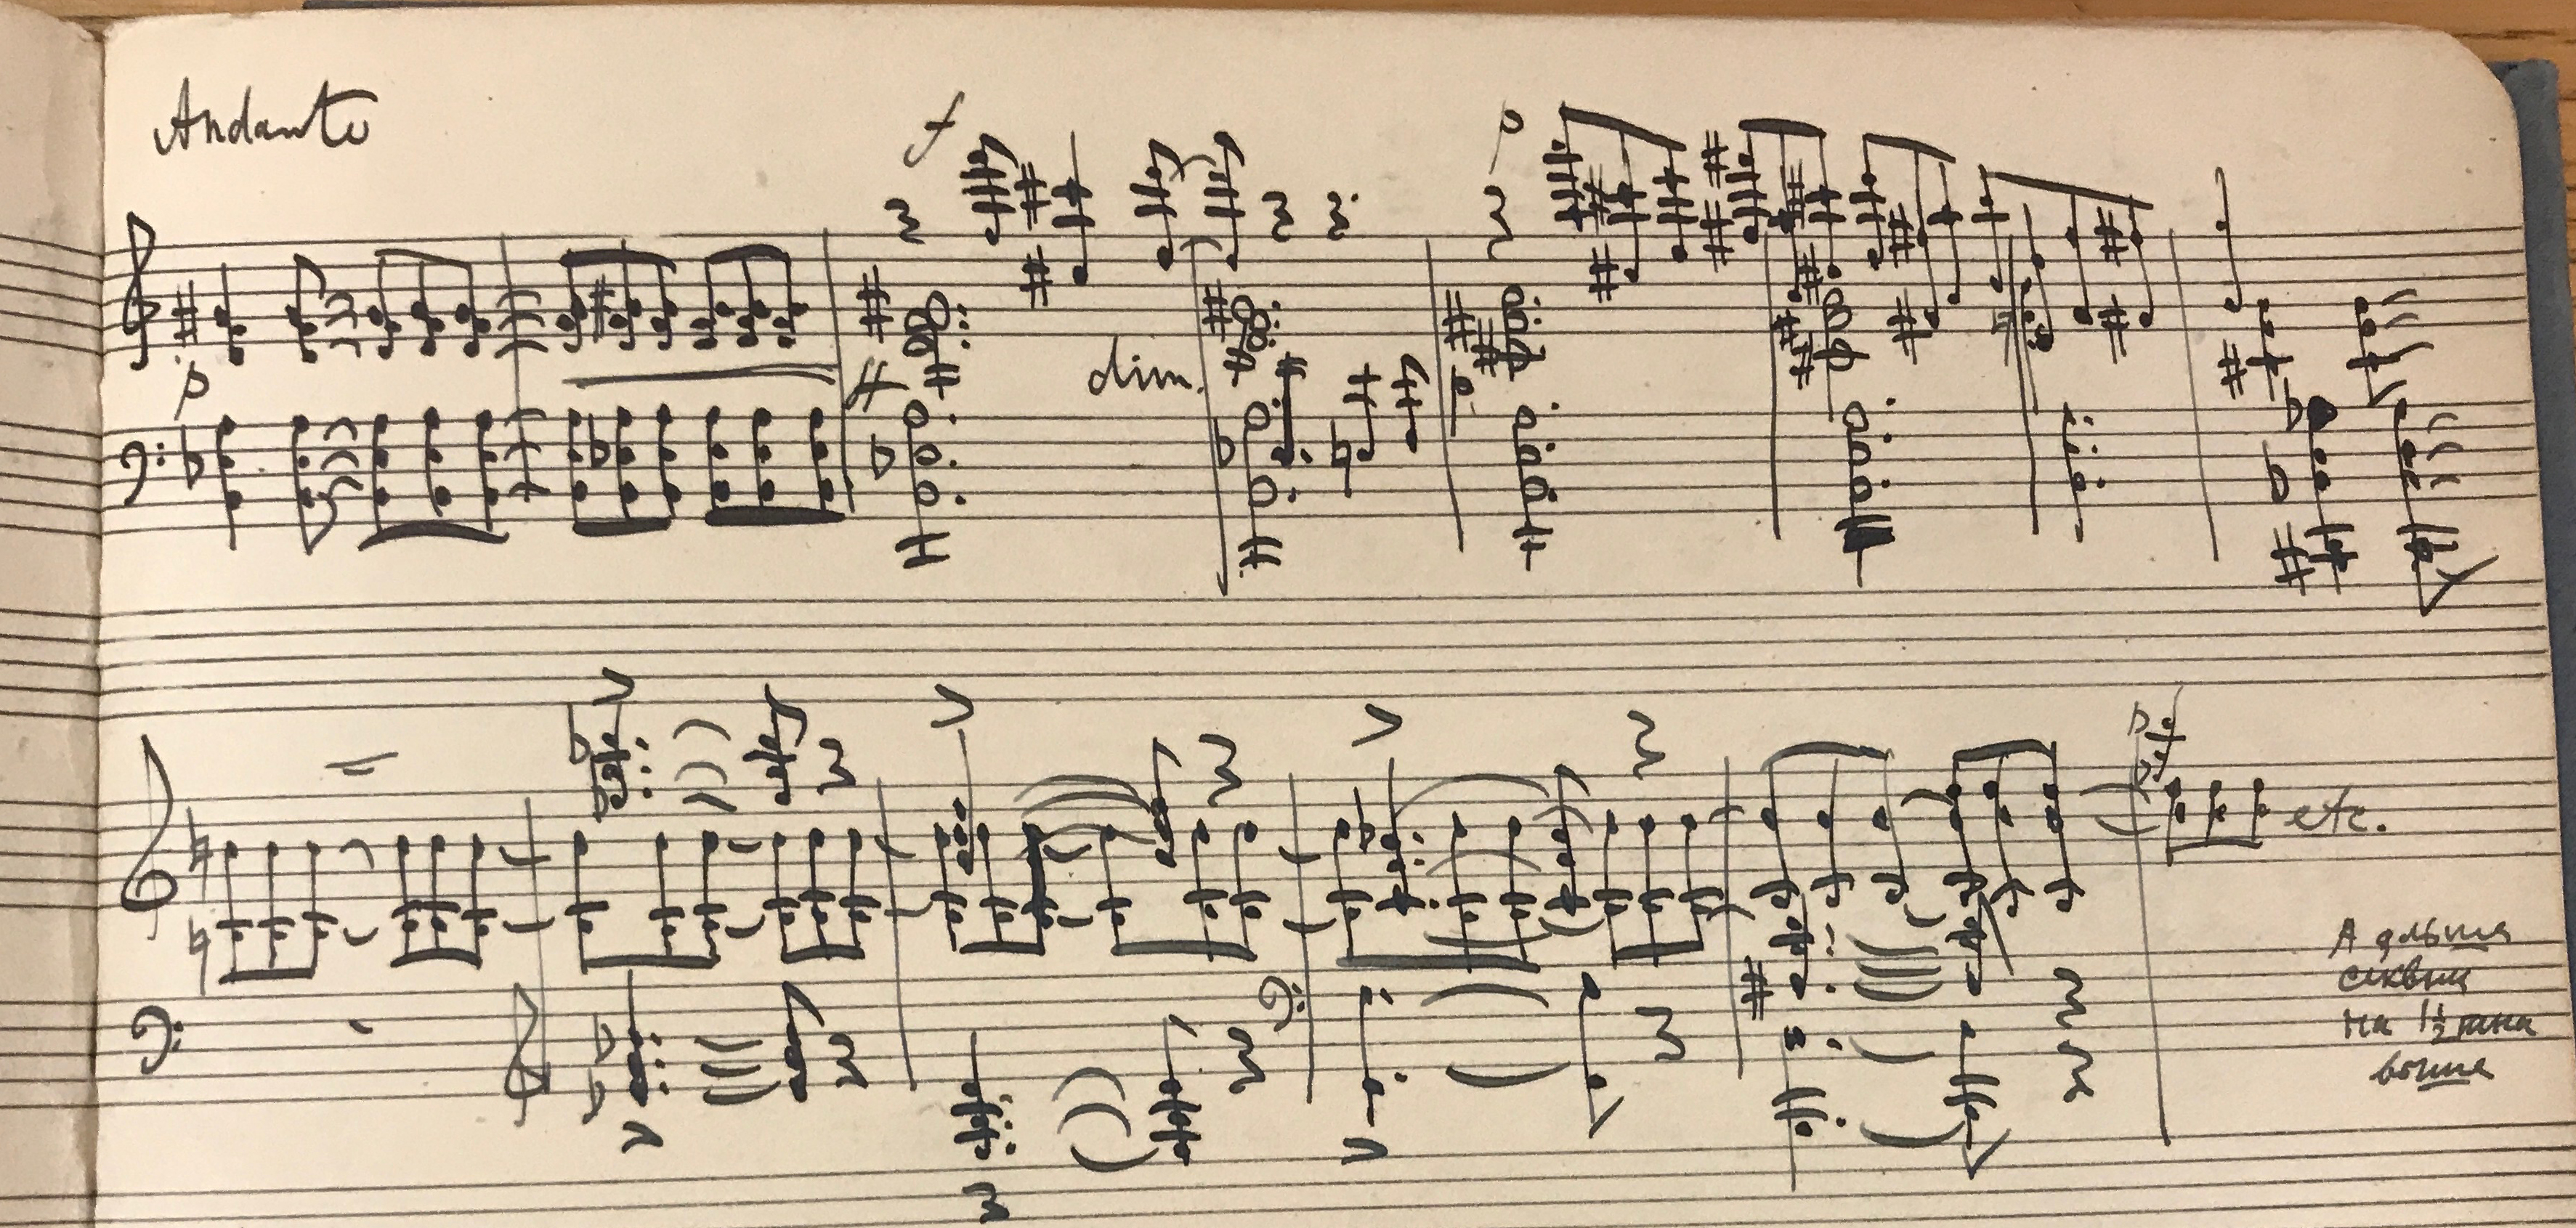 Andante
f
p
p
ff
dim.
p
p
etc.
А дальше
секвенц
на 1½ тона
выше